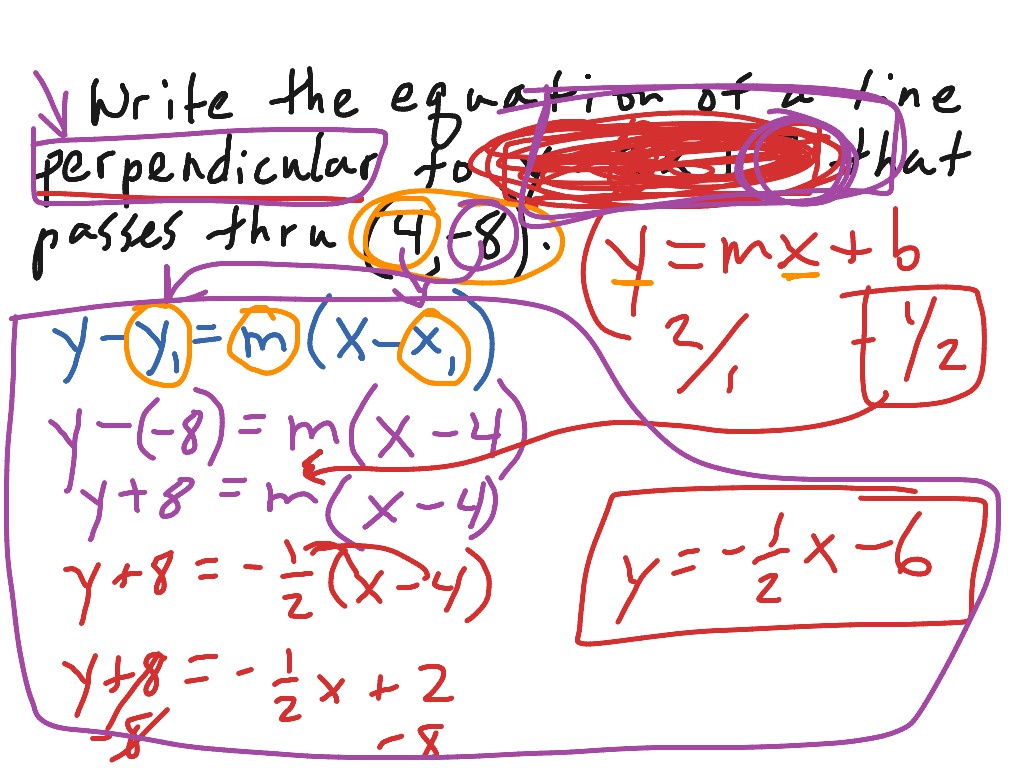 Write the equation of a line
perpendicular to that
passes thru (4, -8).
y = mx + b
2/1
- 1/2
y - y₁ = m(x - x₁)
y - (-8) = m(x - 4)
y + 8 = m(x - 4)
y + 8 = - 1/2 (x - 4)
y + 8 = - 1/2 x + 2
-8 -8
y = - 1/2 x - 6